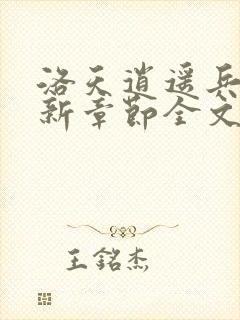 洛天逍遥兵
新章节全文
王铭杰